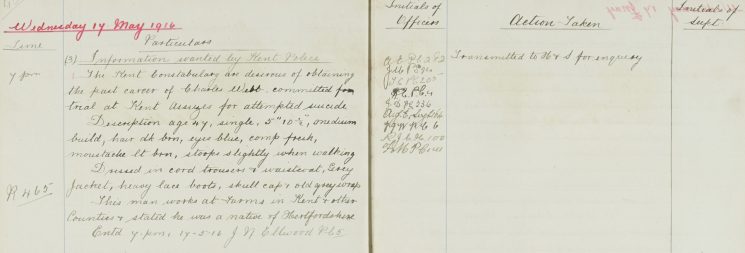 Wednesday 17 May 1916
Time
Particulars
(3) Information wanted by Kent Police
7 pm
The Kent Constabulary are desirous of obtaining
the past career of Charles Webb committed for
trial at Kent Assizes for attempted suicide
Description age 47, single, 5" 10½", medium
build, hair dk brn, eyes blue, comp fresh,
moustache lt brn, stoops slightly when walking
Dressed in cord trousers & waistcoat, Grey
Jacket, heavy lace boots, skull cap & old grey wrap
R 465
This man works at Farms in Kent & other
Counties & stated he was a native of Hertfordshire
Entd 7 pm, 17-5-16 J N Ellwood PC 5
Initials of
Officers
Action Taken
Initials of
Supt.
Transmitted to H & S for enquiry